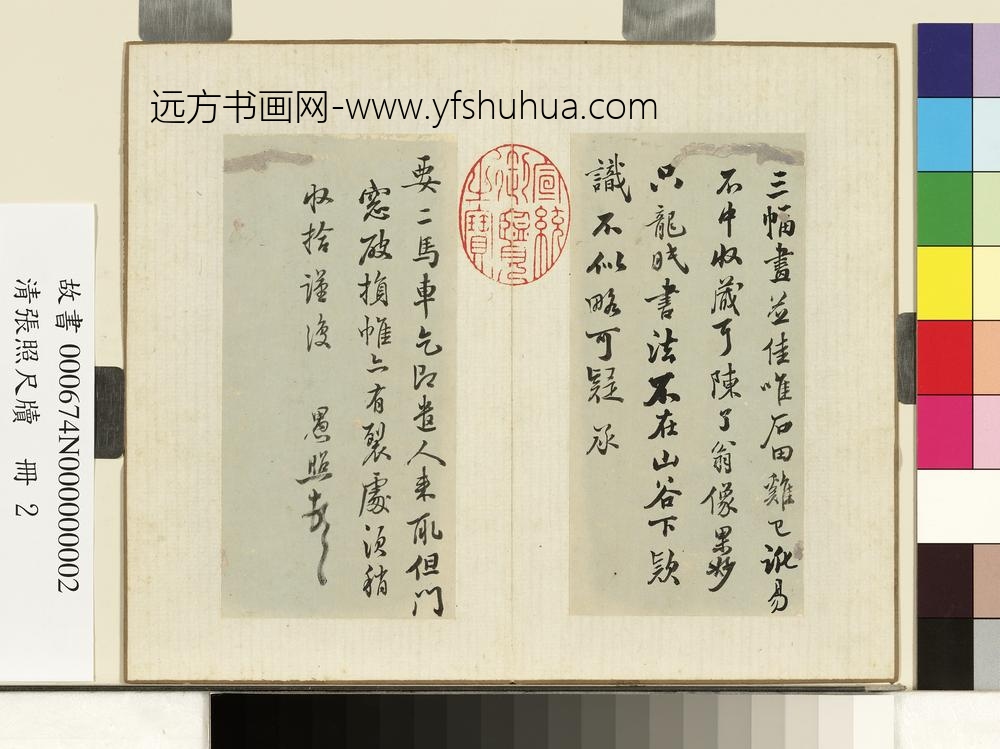 远方书画网-www.yfshuhua.com
三幅畫並佳唯石田雞已訛易
不中收藏耳陳了翁像果妙
只龍眠書法不在山谷下款
識不似略可疑承
宣統御覽之寶
要二馬車乞即遣人來取但門
窓破損帷亦有裂處須稍
收拾謹復 愚照
故書 000674N000000002
清張照尺牘 冊 2